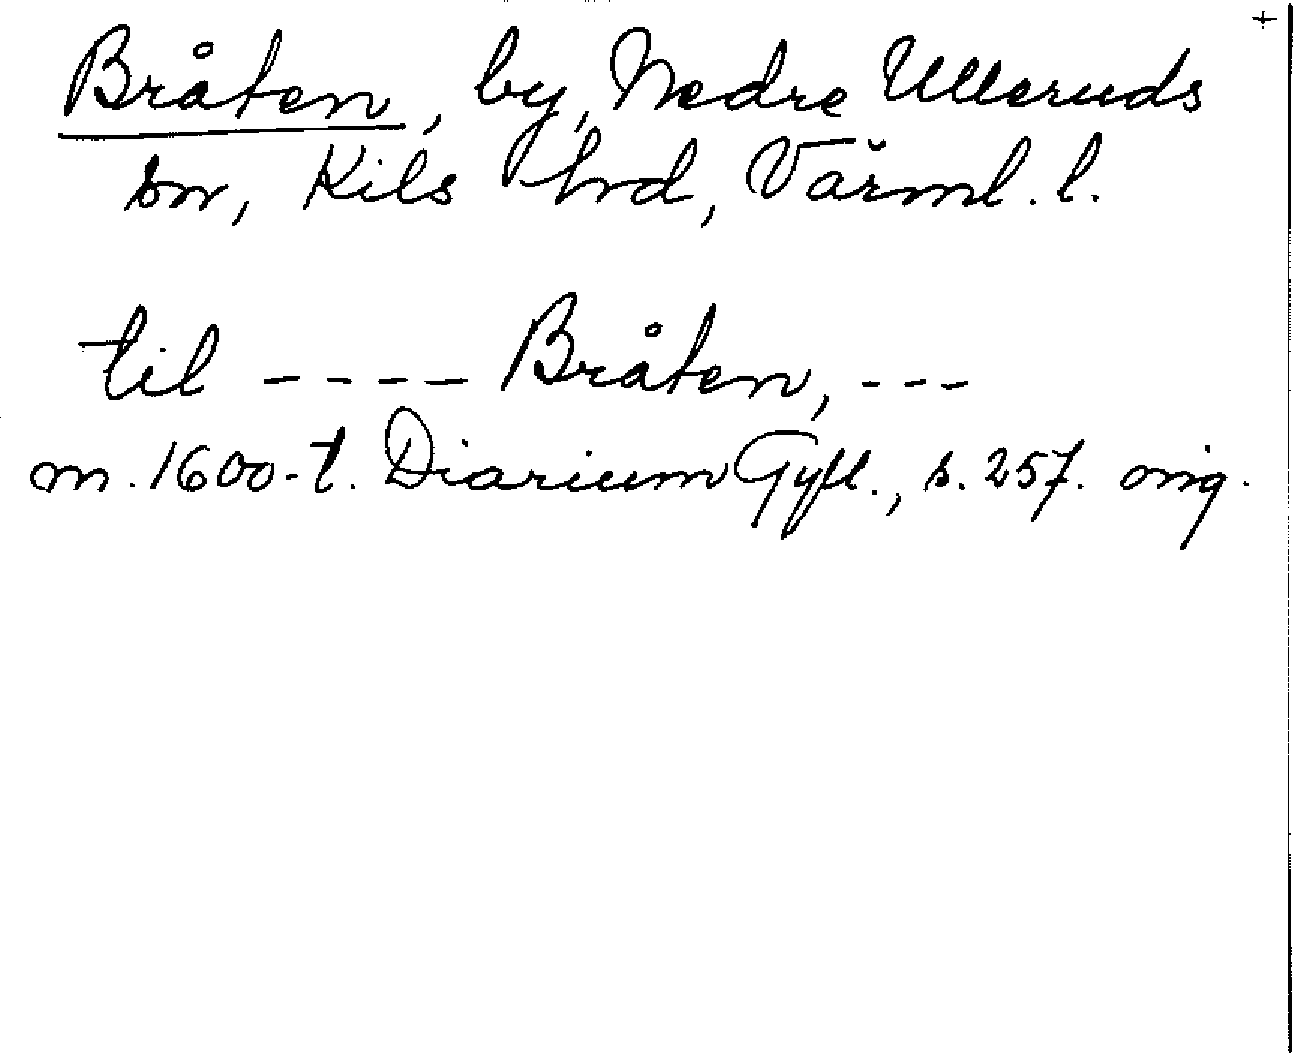 +
Bråten, by, Nedre Ulleruds
sn, Kils hrd, Värml. l.
til ---- Bråten, ---
m. 1600-t. Diarium Gyll., s. 257. orig.